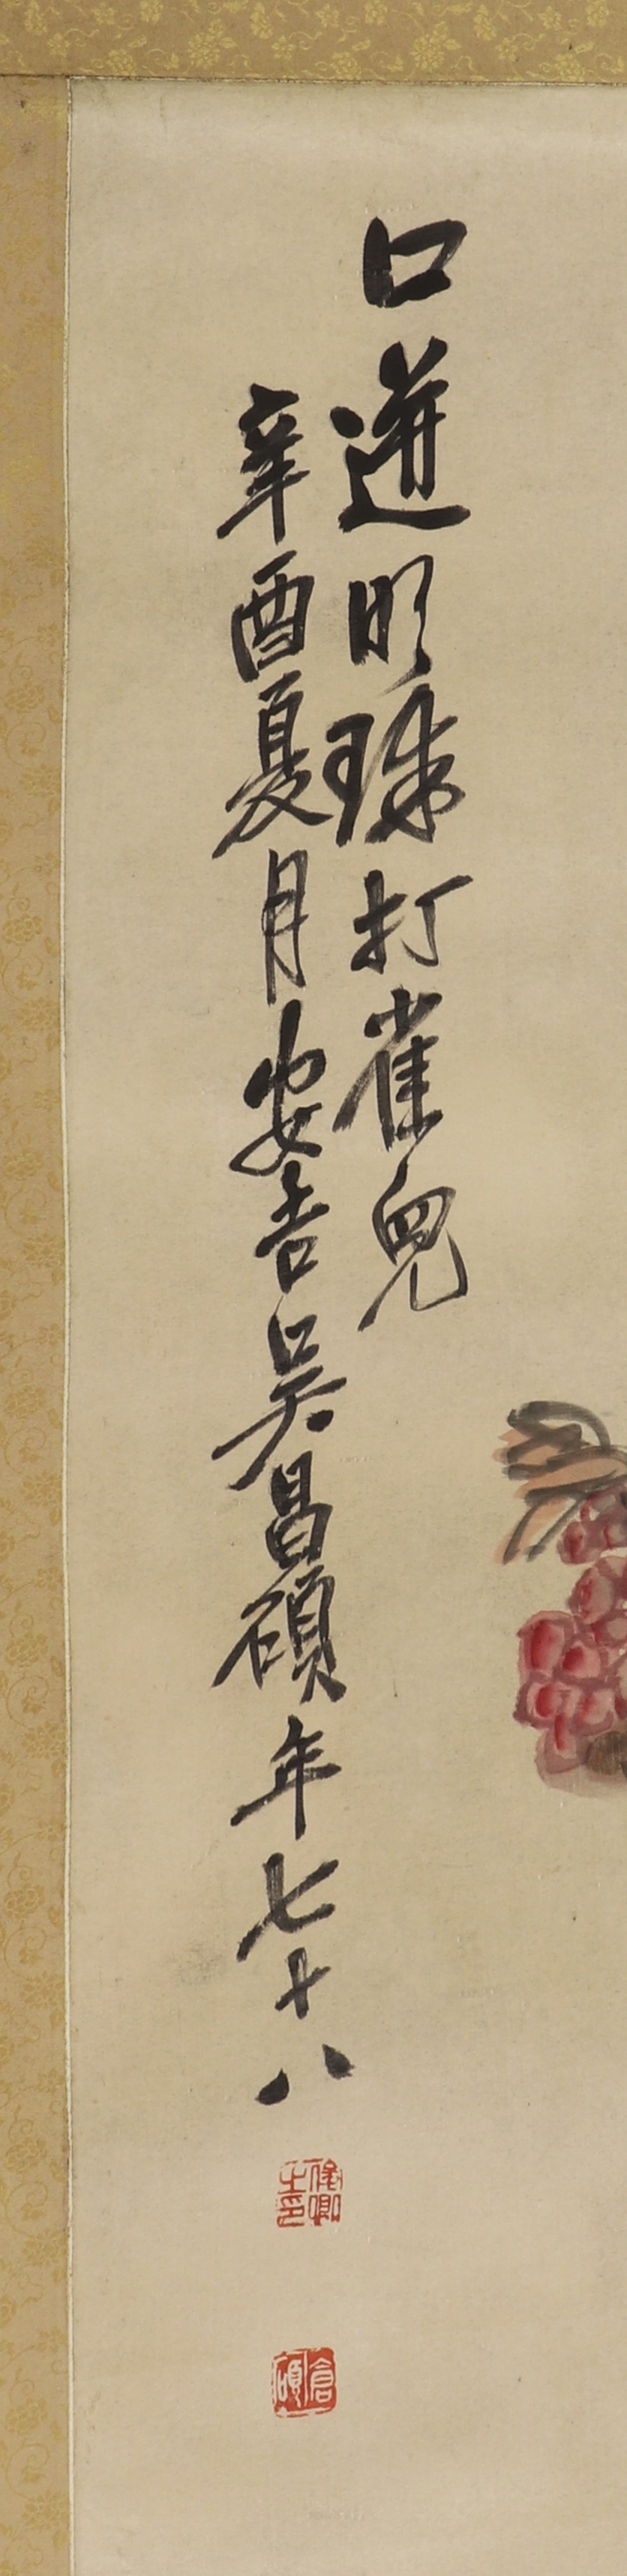 口迸明珠打雀兒
辛酉夏月安吉吳昌碩年七十八
俊卿之印
倉碩